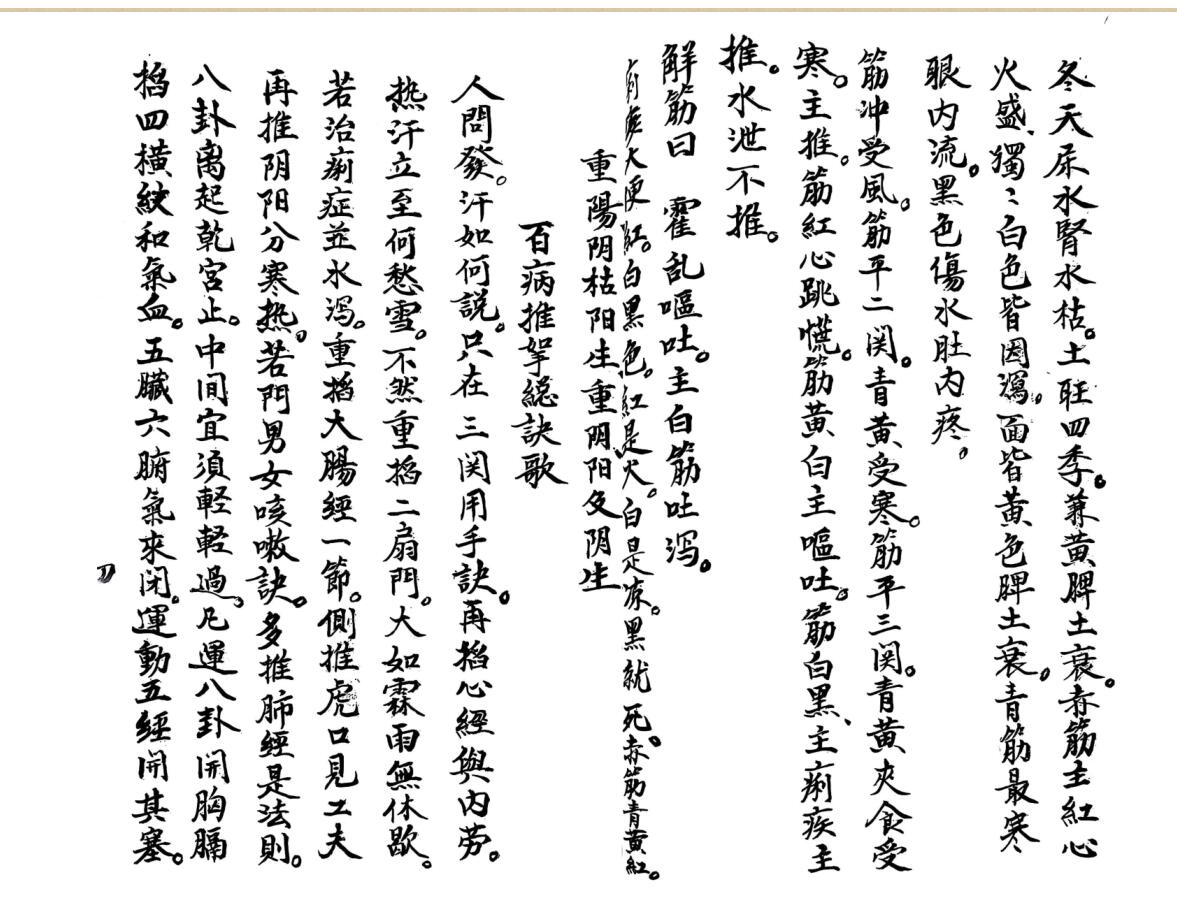 冬天尿水腎水枯。土旺四季。兼黃脾土衰。赤筋主紅心
火盛、獨〻白色皆因瀉。面皆黃色脾土衰。青筋最寒
眼内流。黑色傷水肚内疼。
筋冲受風。筋平二関。青黃受寒。筋平三関。青黃夾食受
寒。主推。筋紅心跳慌。筋黃白主嘔吐。筋白黑、主痢疾主
推。水泄不推。
解筋曰 霍乱嘔吐。主白筋吐泻。
大便紅。白黑色。紅是火。白是凉。黑就死。赤筋青黃紅。
重陽阴枯阳生重阴阳及阴生
百病推拏総訣歌
人問發。汗如何説。只在三関用手訣。再掐心經與内劳。
热汗立至何愁雪。不然重掐二扇門。大如霖雨無休歇。
若治痢症並水泻。重掐大腸經一節。側推虎口見工夫
再推阴阳分寒热。若門男女咳嗽訣。多推肺經是法則。
八卦离起乾宮止。中间宜須輕輕過。凡運八卦開胸膈
掐四橫紋和氣血。五臟六腑氣來闭。運動五經開其塞。